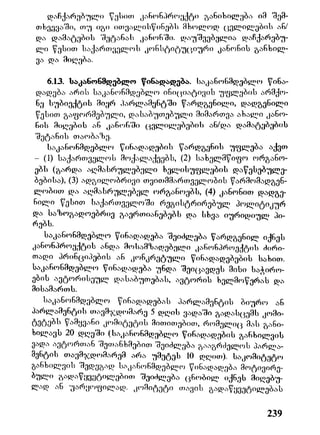 დაჩქარებული წესით კანონპროექტი განიხილება იმ შემ-
თხვევაში, თუ იგი ითვალისწინებს მხოლოდ ცვლილების ან/
და დამატების შეტანას კანონში. დაუშვებელია დაჩქარებუ-
ლი წესით საქართველოს კონსტიტუციური კანონის განხილ-
ვა და მიღება.
6.13. საკანონმდებლო წინადადება. საკანონმდებლო წინა-
დადება არის საკანონმდებლო ინიციატივის უფლების არმქო-
ნე სუბიექტის მიერ პარლამენტში წარდგენილი, დადგენილი
წესით გაფორმებული, დასაბუთებული მიმართვა ახალი კანო-
ნის მიღების ან კანონში ცვლილებების ან/და დამატებების
შეტანის თაობაზე.
საკანონმდებლო წინადადების წარდგენის უფლება აქვთ
– (1) საქართველოს მოქალაქეებს, (2) სახელმწიფო ორგანო-
ებს (გარდა აღმასრულებელი ხელისუფლების დაწესებულე-
ბებისა), (3) ადგილობრივი თვითმმართველობის წარმომადგენ-
ლობით და აღმასრულებელ ორგანოებს, (4) კანონით დადგე-
ნილი წესით საქართველოში რეგისტრირებულ პოლიტიკურ
და საზოგადოებრივ გაერთიანებებს და სხვა იურიდიულ პი-
რებს.
საკანონმდებლო წინადადება შეიძლება წარდგენილ იქნეს
კანონპროექტის ანდა მოსამზადებელი კანონპროექტის ძირი-
თადი პრინციპების ან კონკრეტული წინადადებების სახით.
საკანონმდებლო წინადადება უნდა შეიცავდეს მისი საჭირო-
ების ავტორისეულ დასაბუთებას, ავტორის ხელმოწერას და
მისამართს.
საკანონმდებლო წინადადებას პარლამენტის ბიურო ან
პარლამენტის თავმჯდომარე 5 დღის ვადაში გადასცემს კომი-
ტეტებს წამყვანი კომიტეტის მითითებით, რომელიც მას განი-
ხილავს 20 დღეში (საკანონმდებლო წინადადების განხილვის
ვადა ავტორთან შეთანხმებით შეიძლება გააგრძელოს პარლა-
მენტის თავმჯდომარემ არა უმეტეს 10 დღით). საკომიტეტო
განხილვის შედეგად საკანონმდებლო წინადადება მოტივირე-
ბული გადაწყვეტილებით შეიძლება ცნობილ იქნეს მიღებუ-
ლად ან უარყოფილად. კომიტეტი თავის გადაწყვეტილებას
239